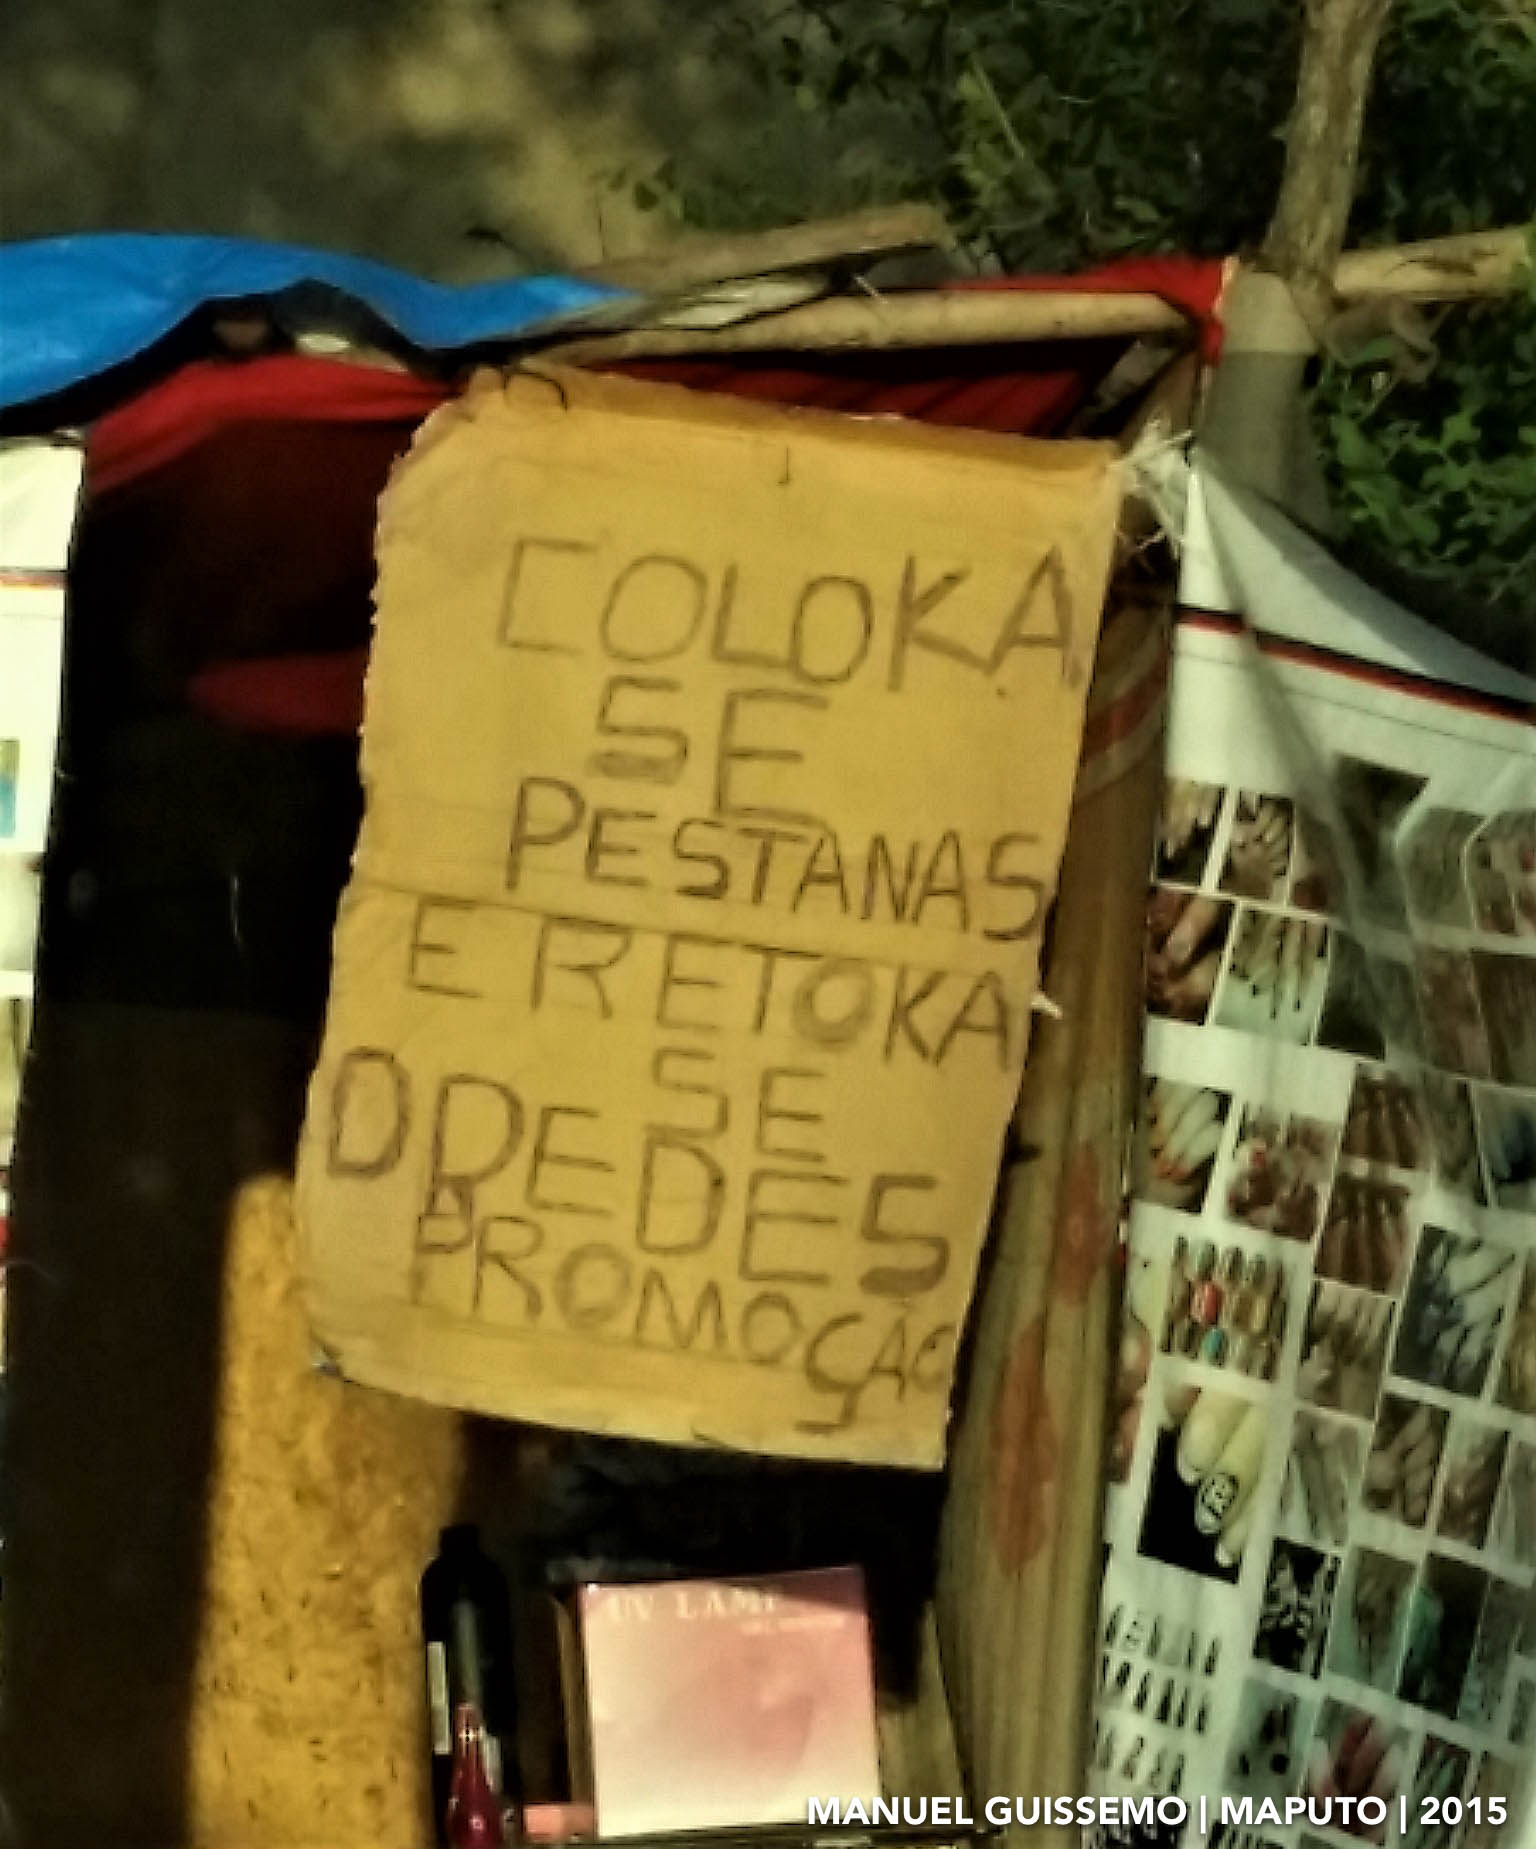 COLOKA
SE
PESTANAS
E RETOKA
SE
DREDES
PROMOÇÃO
UV LAMP
MANUEL GUISSEMO | MAPUTO | 2015